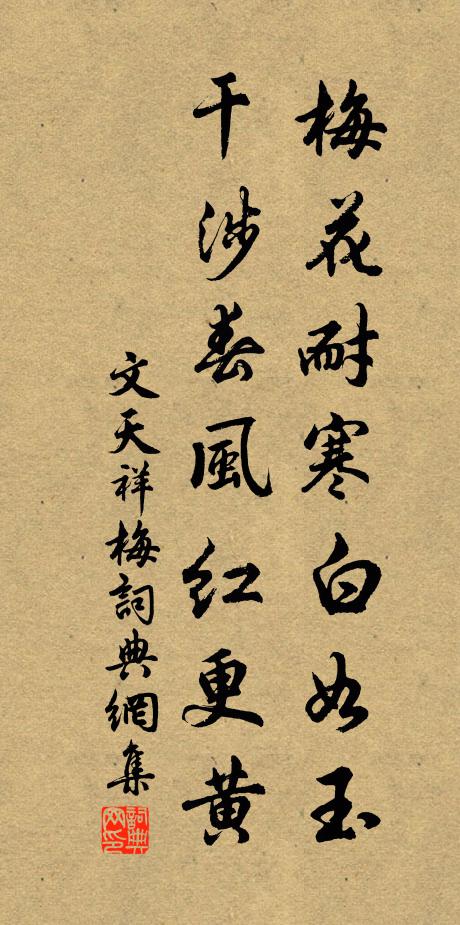 梅花耐寒白如玉
干涉春風紅更黃
文天祥梅詞典網集
詞典網印